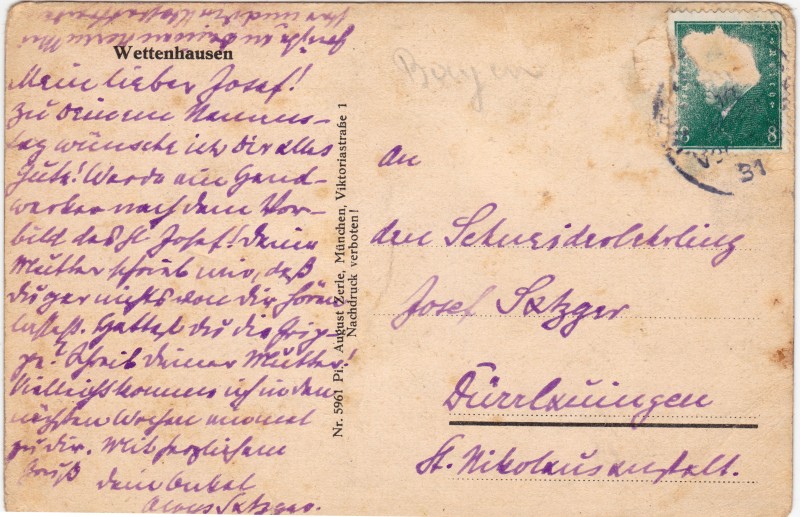 Wettenhausen
Mein lieber Josef!
Zu deinem Namens-
tag wünsche ich Dir alles
Gute! Werde ein Hand-
werker nach dem Vor-
bild des hl. Josef! Deine
Mutter schrieb mir, daß
du gar nichts von dir hören
lassest. Hattest du die Grip-
pe? Schreib deiner Mutter!
Vielleicht komme ich in den
nächsten Wochen einmal
zu dir. Mit herzlichem
Gruß dein Onkel
Alois Satzger.
Nr. 5961 August Zerle, München, Viktoriastraße 1
Nachdruck verboten!
Bayern
8
31
An
den Schneiderlehrling
Josef Satzger
Dürrlauingen
St. Nikolausanstalt.